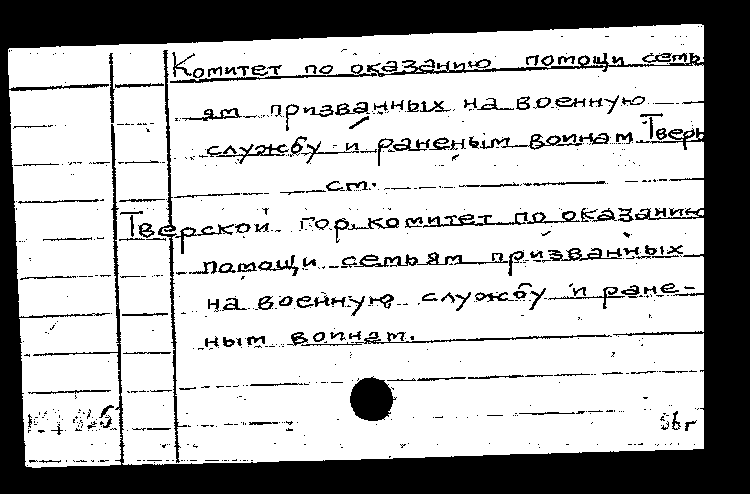 Комитет по оказанию помощи семь
ям призванных на военную
службу и раненым воинам. Тверь
см.
Тверской гор. комитет по оказанию
помощи семьям призванных
на военную службу и ране-
ным воинам.
56г